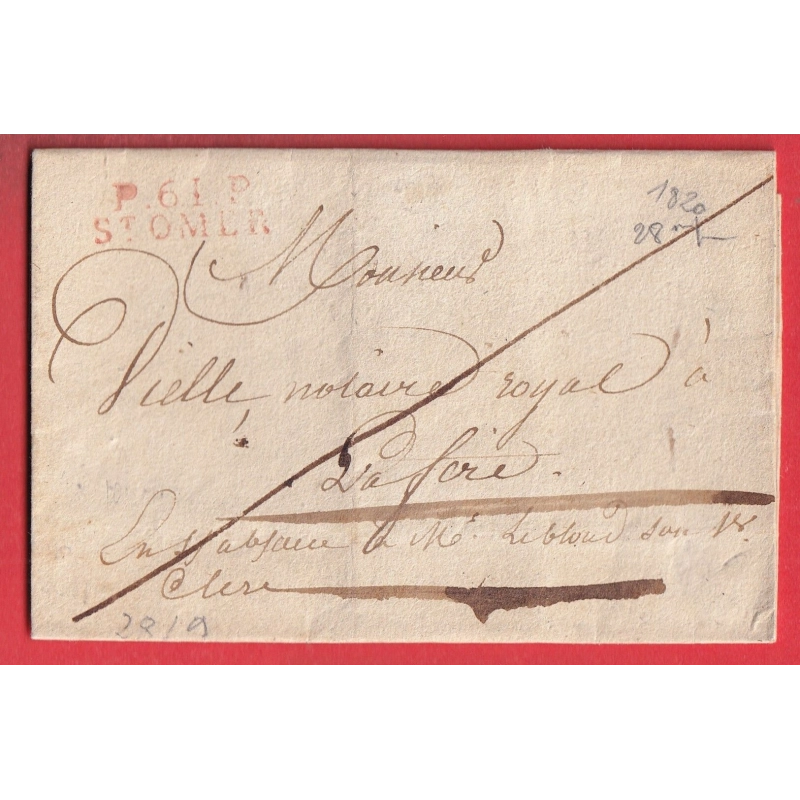 P.61.P
ST OMER
1820
28
Monsieur
Vielle, notaire royal à
La fere.
En s. absence à Mr. Leblond son 1er.
Clerc